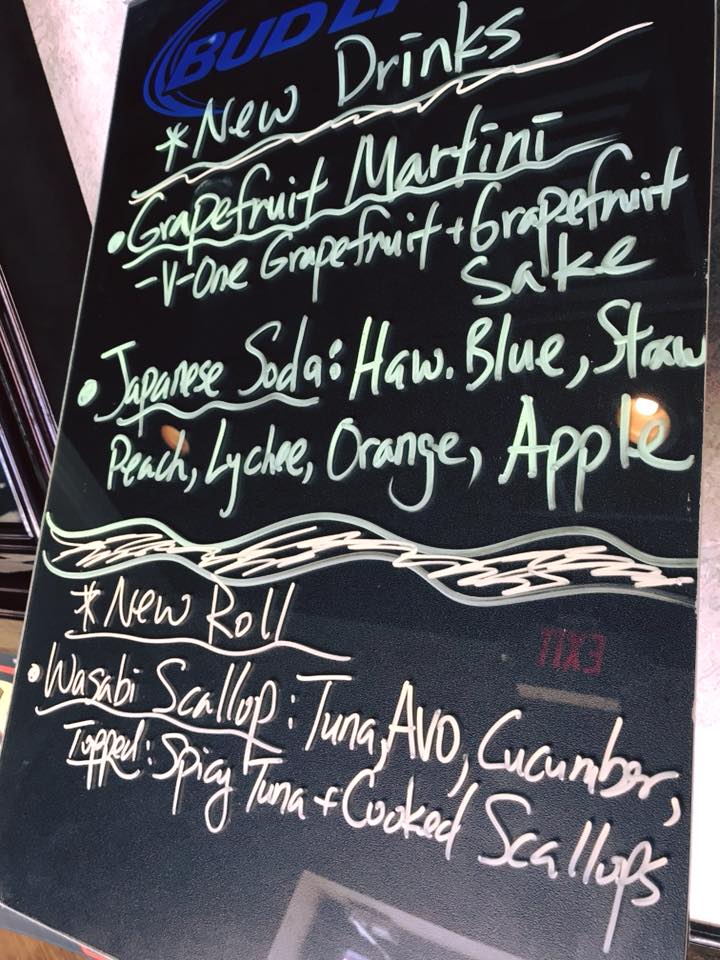 BUD LI
*New Drinks
•Grapefruit Martini
-V-One Grapefruit + Grapefruit
Sake
•Japanese Soda: Haw. Blue, Straw
Peach, Lychee, Orange, Apple
*New Roll
EXIT
•Wasabi Scallop: Tuna, AVO, Cucumber,
Topped: Spicy Tuna + Cooked Scallops